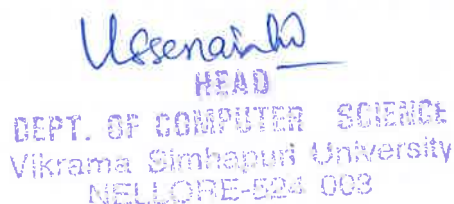 HEAD
DEPT. OF COMPUTER SCIENCE
Vikrama Simhapuri University
NELLORE-524 003